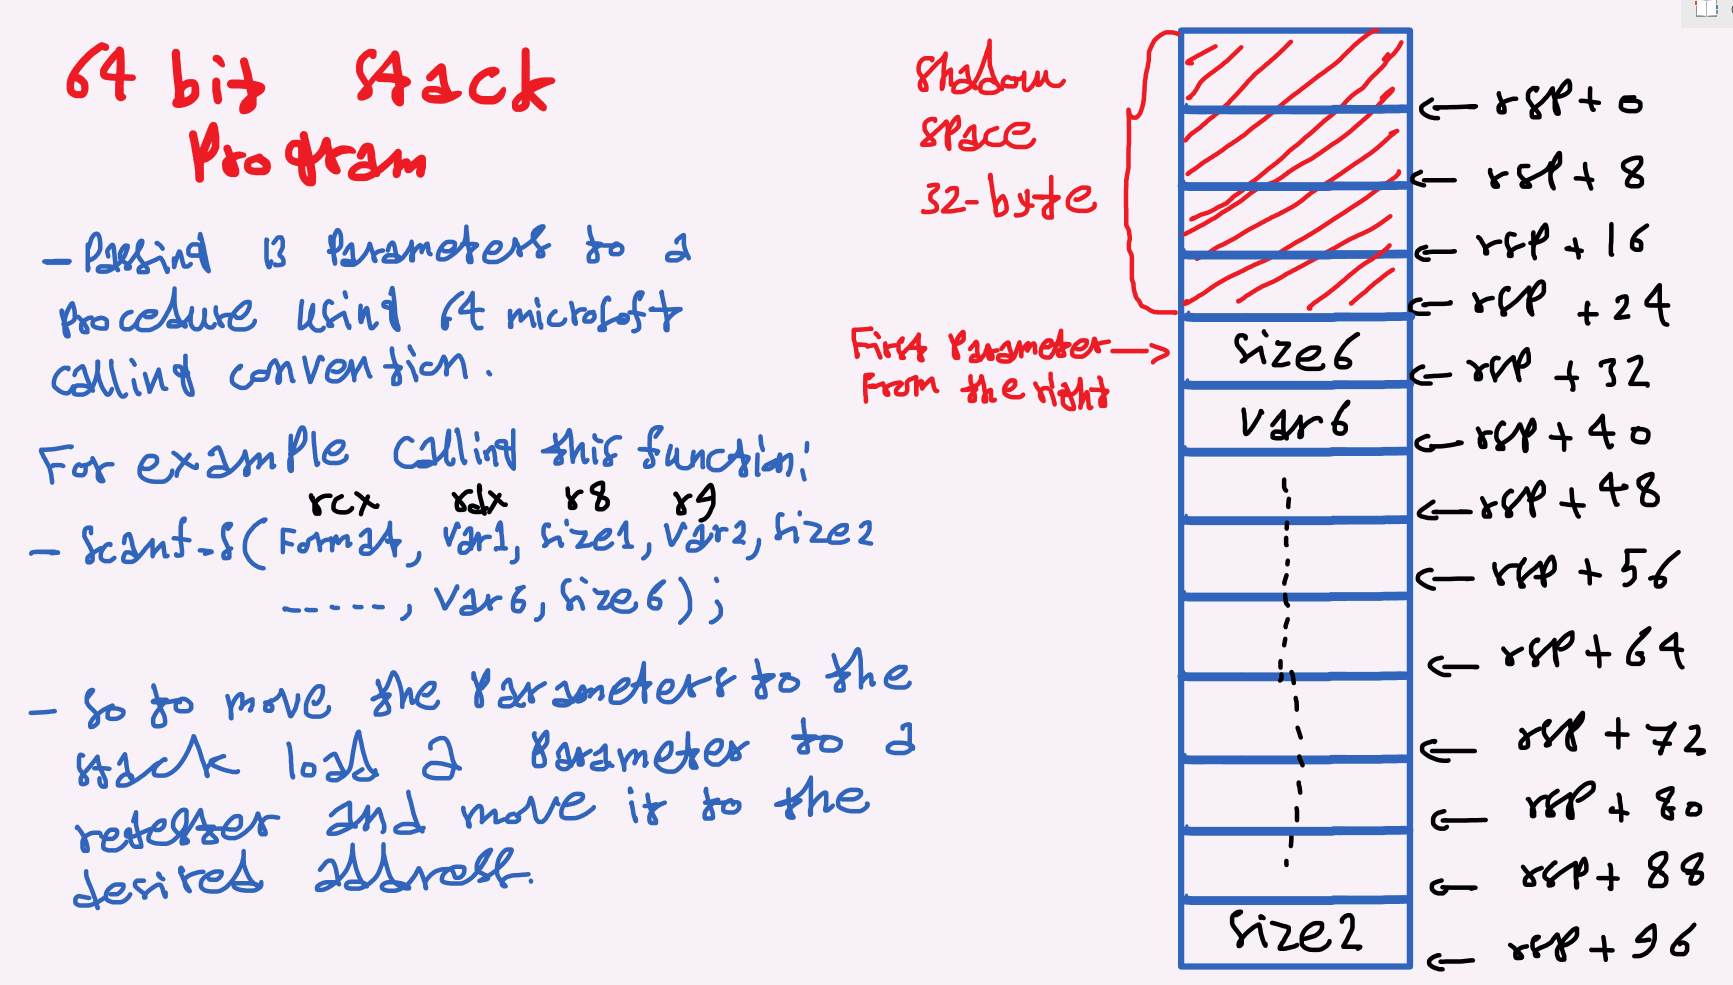 64 bit stack
Program
- Passing 13 Parameters to a
procedure using 64 microsoft
calling convention.
For example calling this function:
rcx rdx r8 r9
- scanf-s(Format, var1, size1, var2, size2
-----, var6, size6);
- so to move the parameters to the
stack load a parameter to a
regester and move it to the
desired address.
shadow
space
32-byte
First parameter
From the right
size6
var6
size2
rsp+0
rsp+8
rsp+16
rsp+24
rsp+32
rsp+40
rsp+48
rsp+56
rsp+64
rsp+72
rsp+80
rsp+88
rsp+96